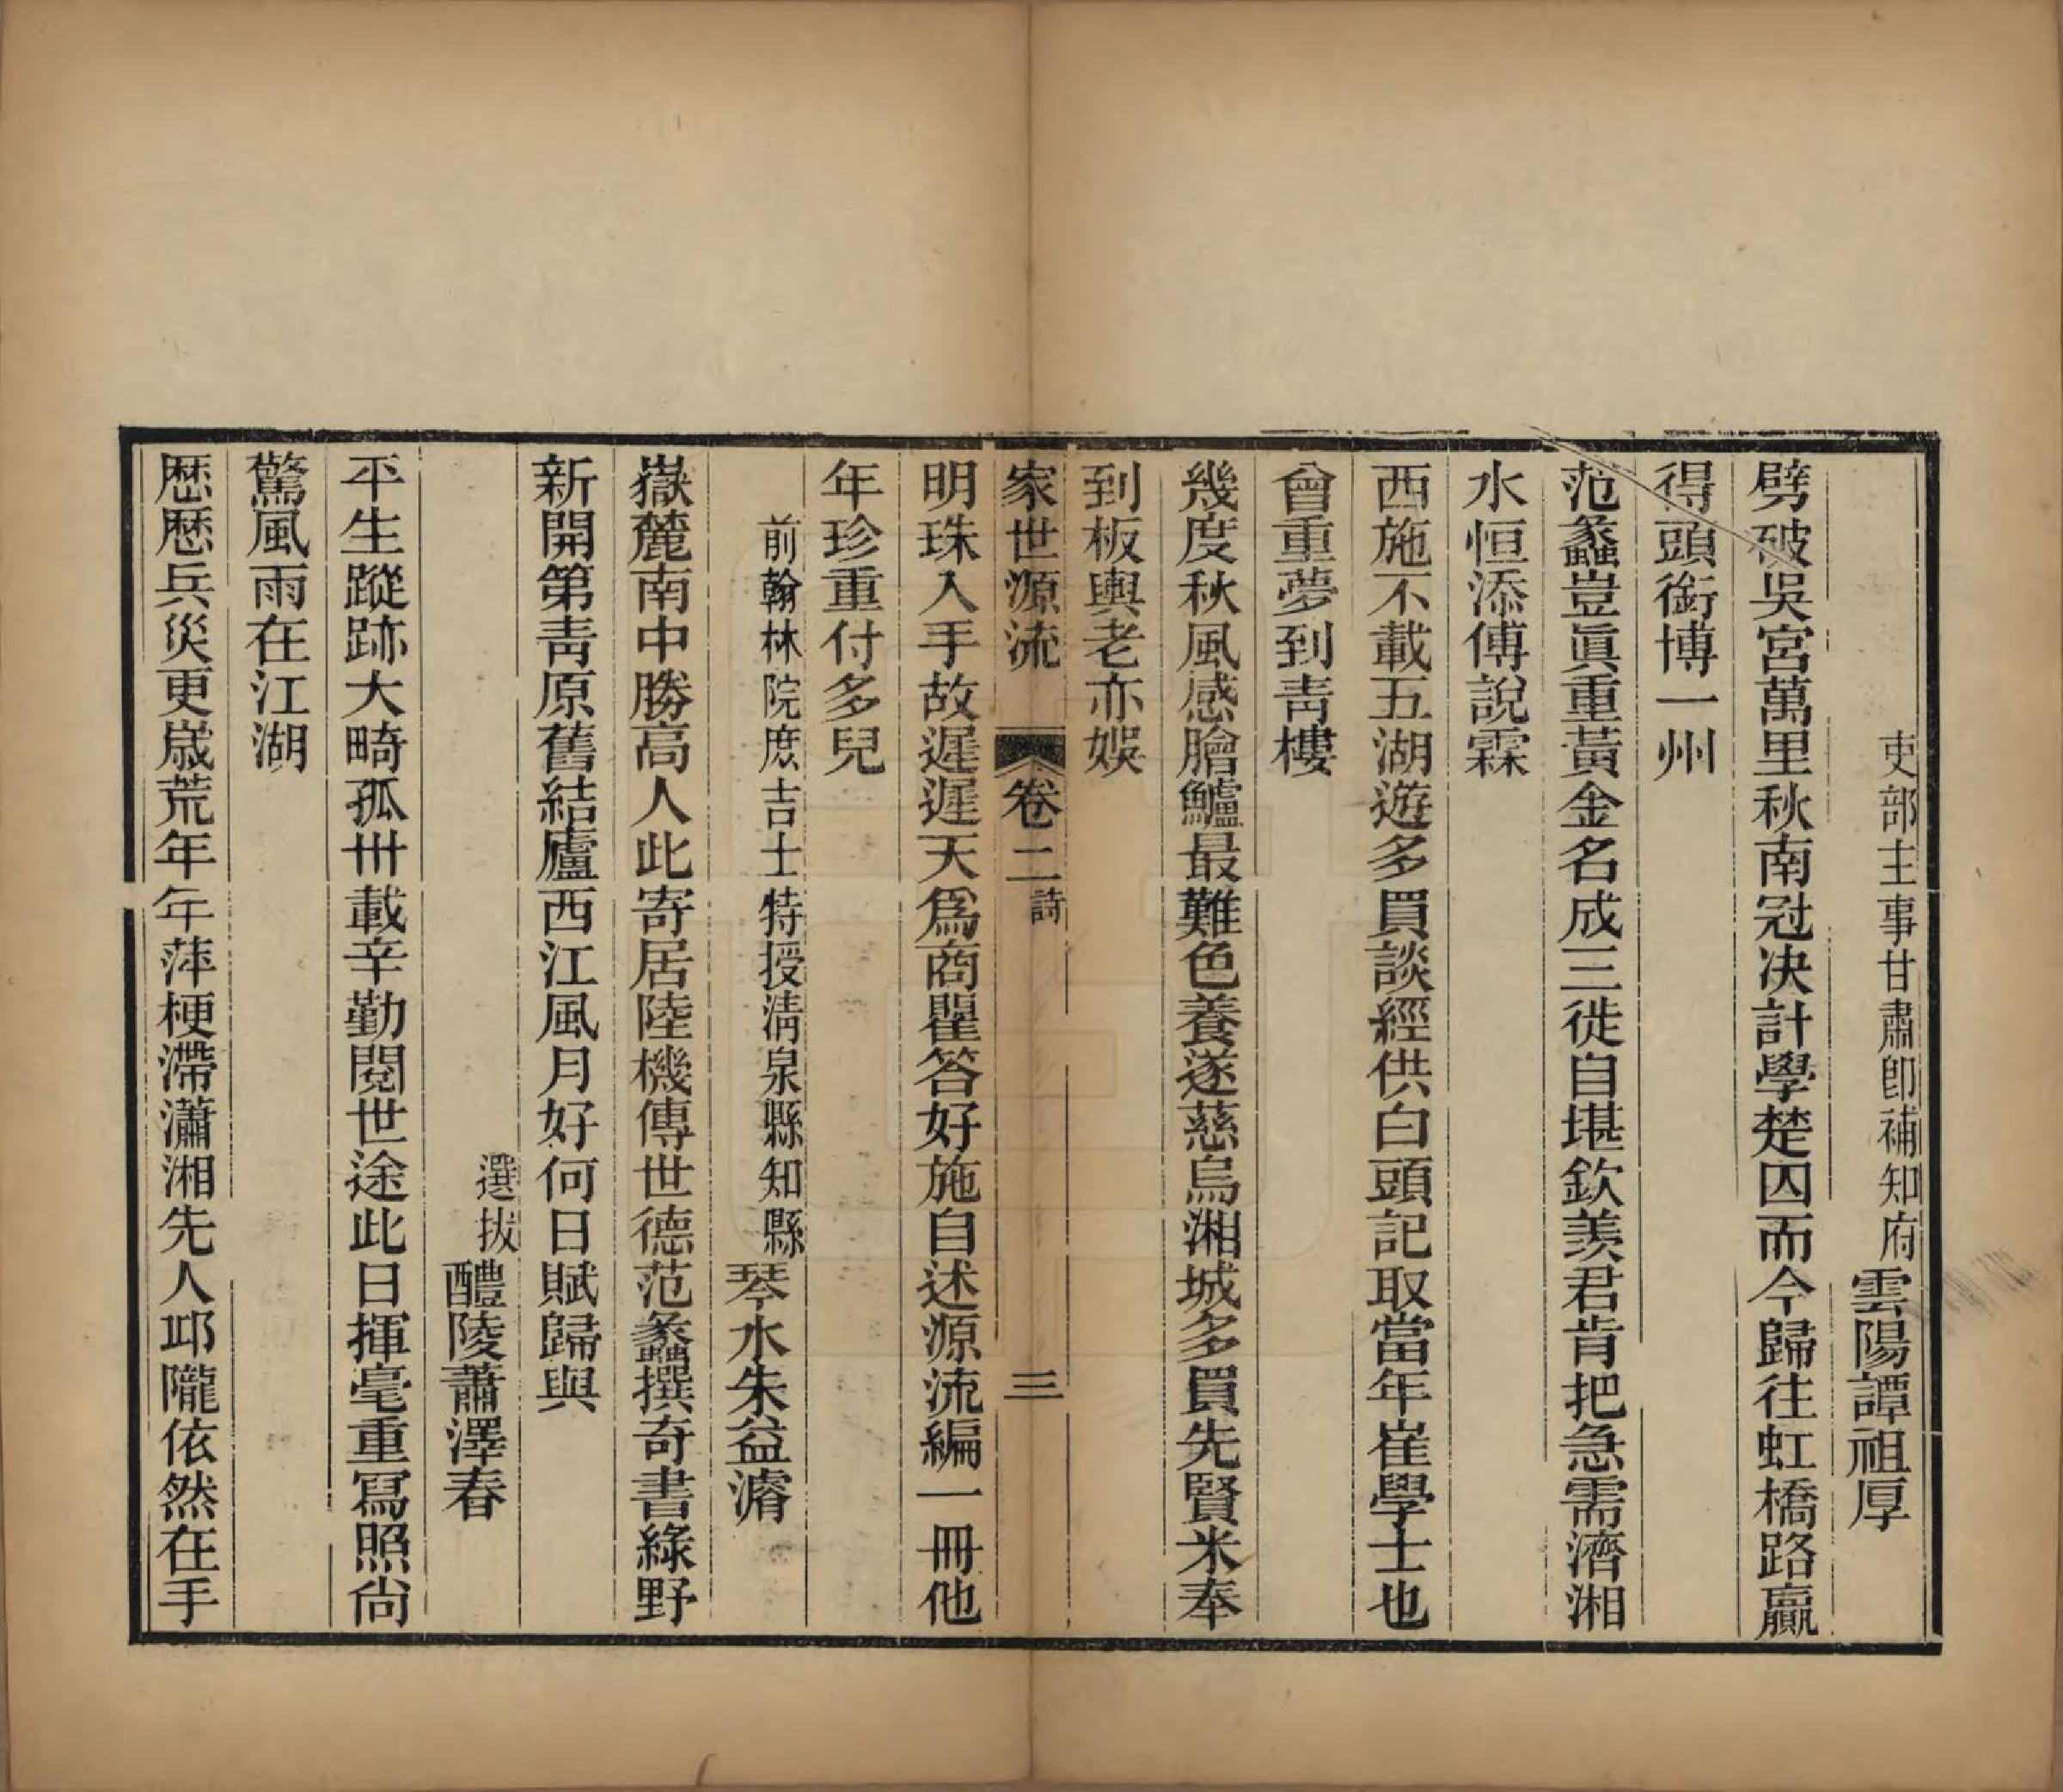 吏部主事甘肅卽補知府雲陽譚祖厚
劈破吳宮萬里秋南冠决計學楚囚而今歸往虹橋路贏
得頭銜博一州
范蠡豈眞重黃金名成三徙自堪欽羨君肯把急需濟湘
水恒添傅說霖
西施不載五湖遊多買談經供白頭記取當年崔學士也
曾重夢到靑樓
幾度秋風感膾鱸最難色養遂慈烏湘城多買先賢米奉
到板輿老亦娛
家世源流 卷二 詩 三
明珠入手故遲遲天爲商瞿答好施自述源流編一冊他
年珍重付多兒
前翰林院庶吉士特授淸泉縣知縣琴水朱益濬
嶽麓南中勝高人此寄居陸機傳世德范蠡撰奇書綠野
新開第靑原舊結廬西江風月好何日賦歸與
選拔醴陵蕭澤春
平生蹤跡大畸孤卅載辛勤閱世途此日揮毫重寫照尙
驚風雨在江湖
歷歷兵災更歲荒年年萍梗滯瀟湘先人邱隴依然在手